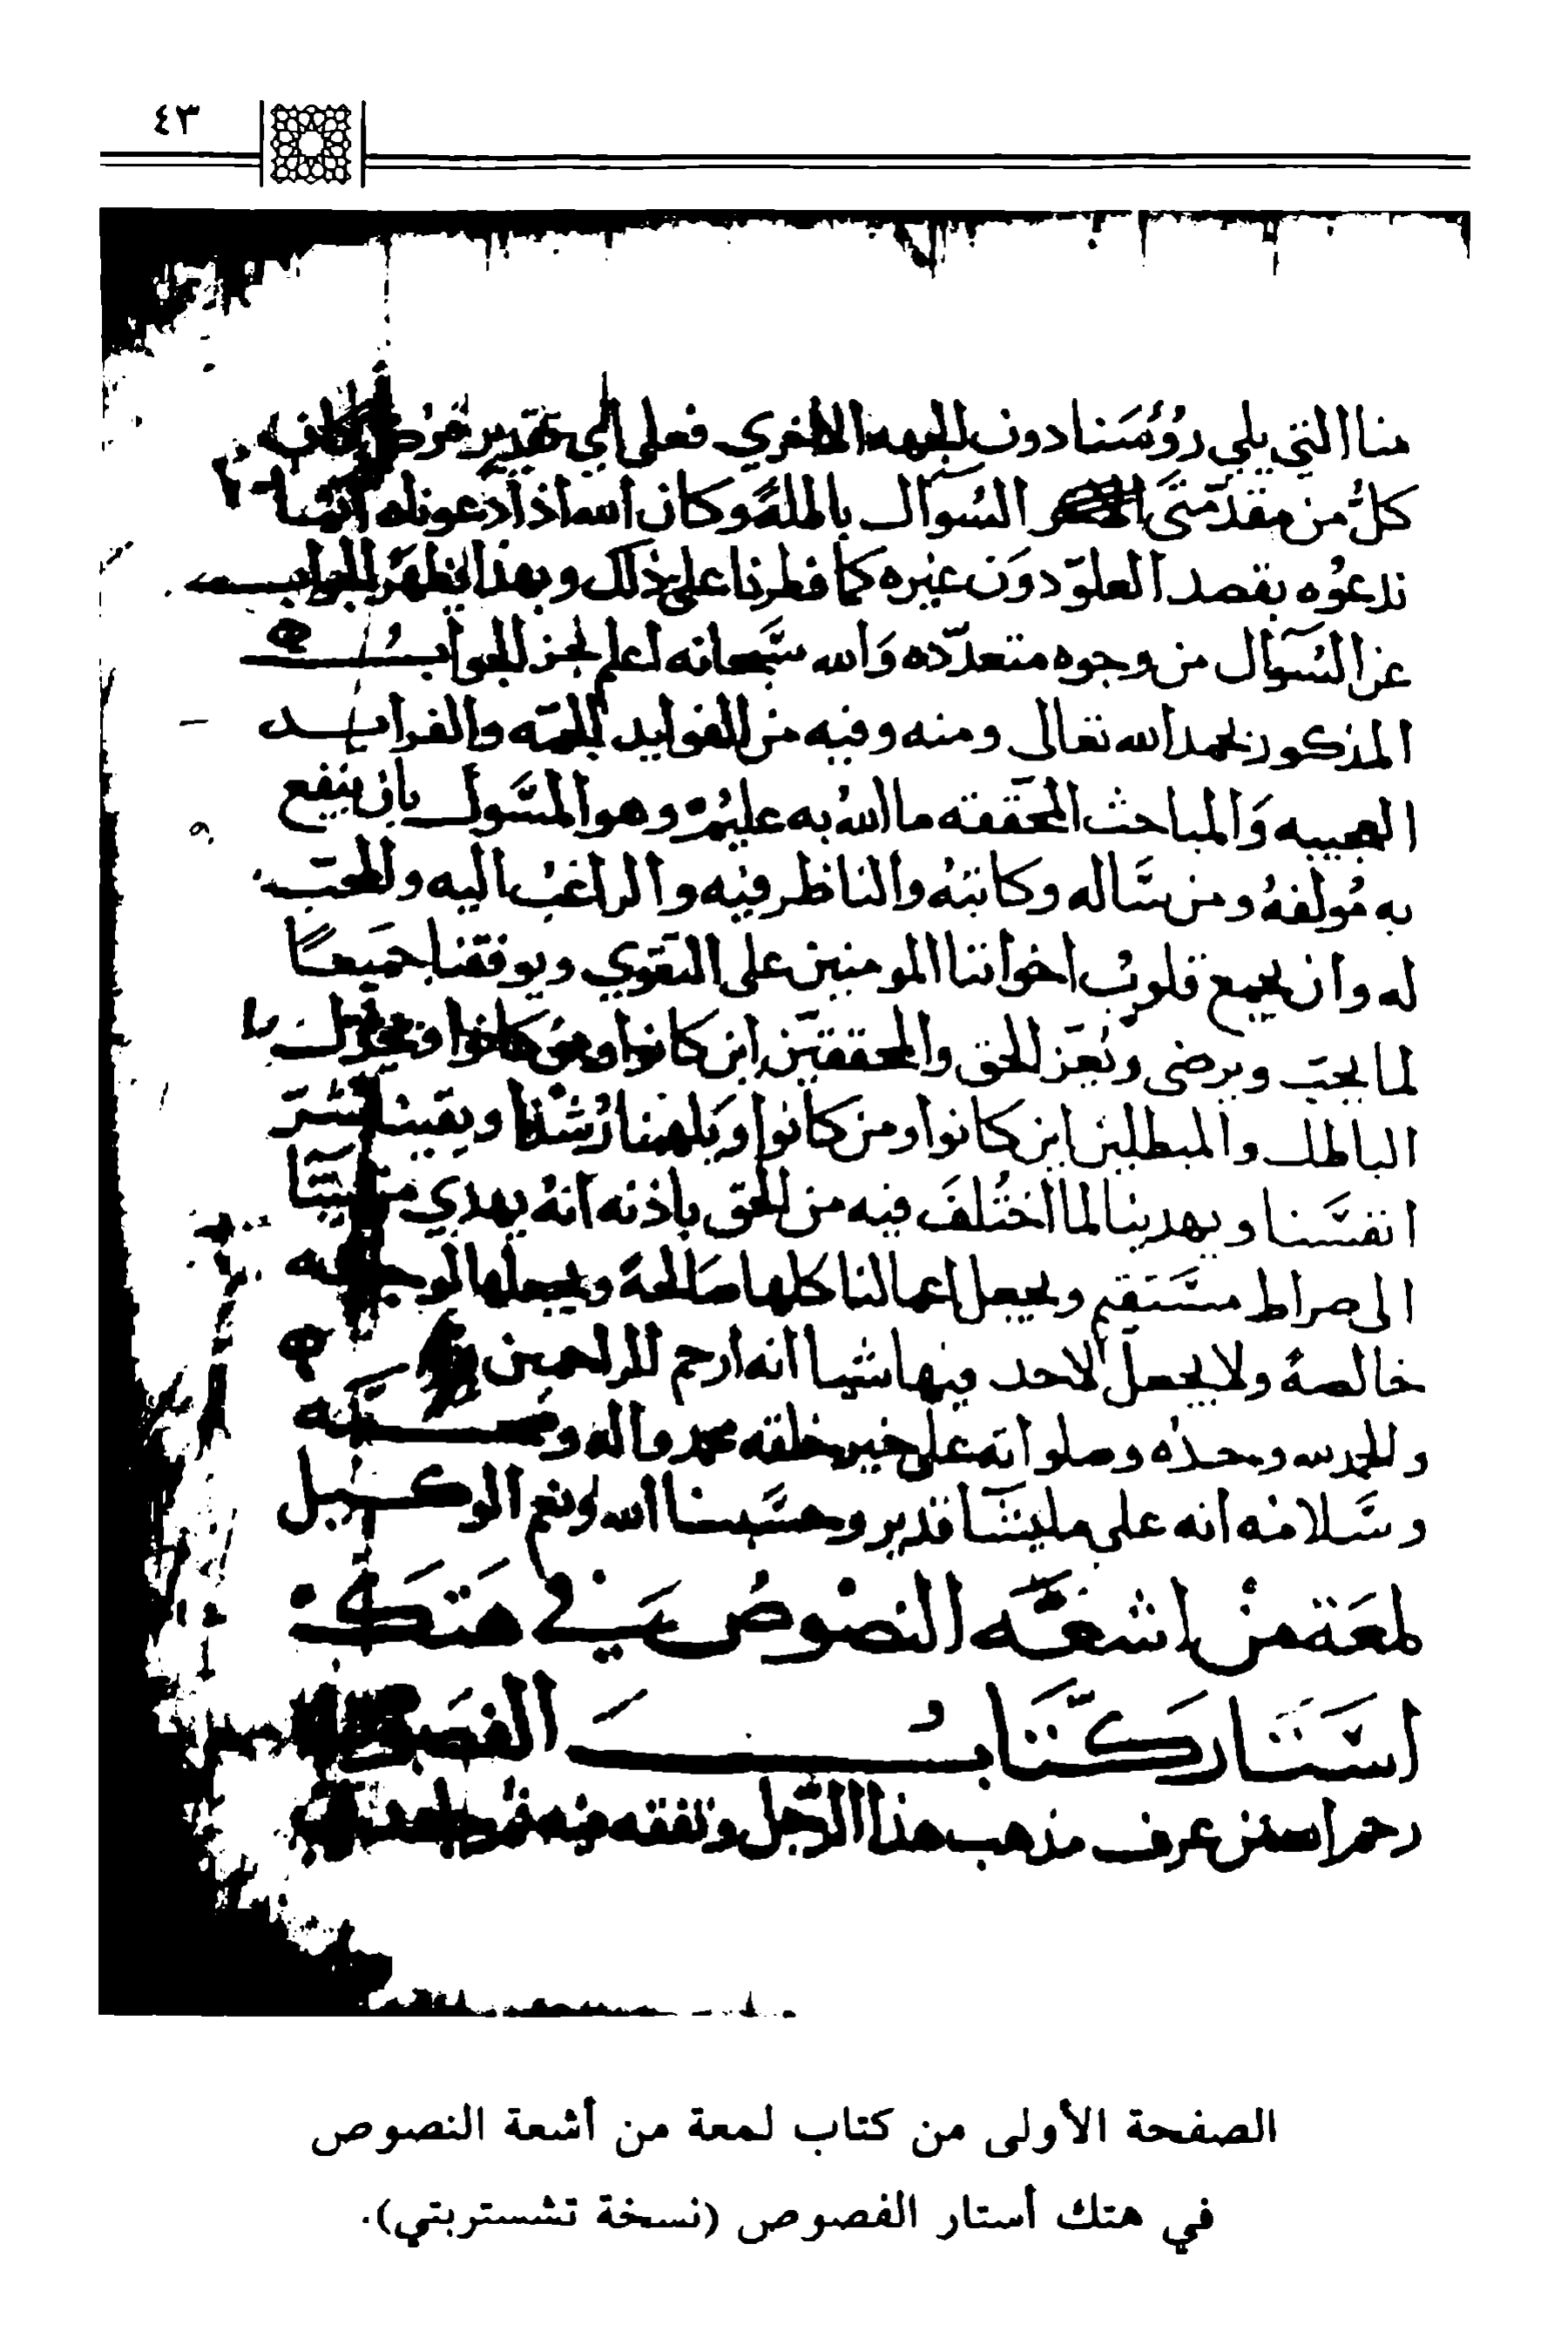 ٤٣
منا التي يلي رؤسنا دون الجهه الاخري فعلي اي تقدير فرض كان
كلٌ من مقدمتي السؤال باطلةً وكان اسا اذا دعوناه انما
ندعوه بقصد العلو دون غيره كما فطرنا على ذلك وبهذا يظهر الجواب
عن السؤال من وجوه متعدده والله سبحانه اعلم نجز الجواب
المذكور بحمد الله تعالى ومنه وفيه من الفوايد الجمه والفرايد
العجيبه والمباحث المحققه ما الله به عليم وهو المسول بان ينفع
به مولفه ومن ساله وكاتبه والناظر فيه والراغب اليه والمحب
له وان يجمع قلوب اخواننا المومنين على التقوي ويوفقنا جميعًا
لما يحب ويرضى ويعز الحق والمحققين اين كانوا ومن كانوا ويخذل
الباطل والمبطلين اين كانوا ومن كانوا ويلهمنا رشدنا ويقينا شر
انفسنا ويهدينا لما اختُلفَ فيه من الحق باذنه انه يهدي من يشا
الى صراط مستقيم ويجعل اعمالنا كلها صالحةً ويجعلها لوجهه
خالصةً ولا يجعل لاحد فيها شيا انه ارحم الراحمين
والحمد لله وحده وصلواته على خير خلقه محمد واله وصحبه
وسلامه انه على ما يشا قدير وحسبنا الله ونعم الوكيل
لمعة من اشعة النصوص في هتك
استار كتاب الفصوص
رحم الله من عرف مذهب هذا الرجل وتفقه فيه
الصفحة الأولى من كتاب لمعة من أشعة النصوص
في هتك أستار الفصوص (نسخة تشستربتي).